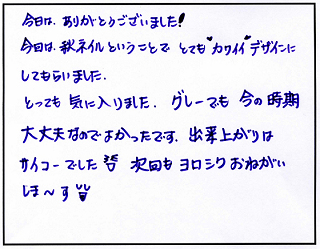 今日は、ありがとうございました!
今日は、秋ネイルということで とても"カワイイ"デザインに
してもらいました。
とっても 気に入りました。 グレーでも 今の時期
大丈夫なのでよかったです。出来上がりは
サイコーでした 次回も ヨロシクおねがい
しま〜す